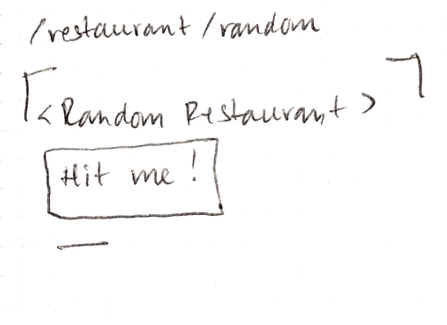 /restaurant/random
<Random Restaurant>
Hit me!